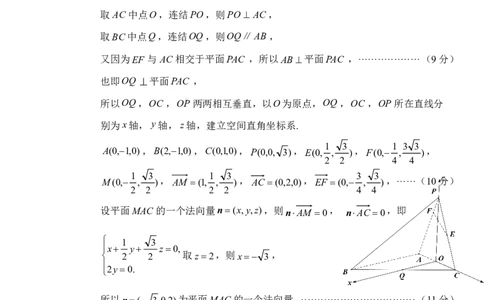 取AC中点O,连结PO,则PO⊥AC,
取BC中点Q,连结OQ,则OQ∥AB,
又因为EF与AC相交于平面PAC,所以AB⊥平面PAC,··················(9分)
也即OQ⊥平面PAC,
所以OQ,OC,OP两两相互垂直,以O为原点,OQ,OC,OP所在直线分
别为x轴,y轴,z轴,建立空间直角坐标系.
A(0,-1,0),B(2,-1,0),C(0,1,0),P(0,0,√3),E(0,1/2,√3/2),F(0,-1/4,3√3/4),
M(0,-1/2,√3/2),AM=(1,1/2,√3/2),AC=(0,2,0),EF=(0,-3/4,√3/4),······(10分)
设平面MAC的一个法向量n=(x,y,z),则n·AM=0,n·AC=0,即
{x+1/2y+√3/2z=0,
2y=0.
取z=2,则x=-√3,
P
F
E
A
O
B
Q
C
x
为平面MAC的一个法向量
(11分)